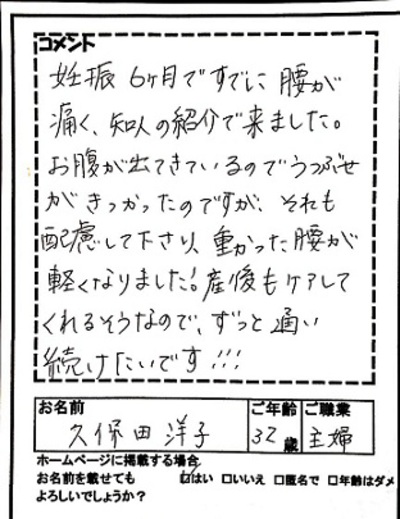 コメント
妊振 6ヶ月ですでに 腰が
痛く、知人の紹介で来ました。
お腹が出てきているのでうつぶせ
がきつかったのですが、それも
配慮して下さり、重かった腰が
軽くなりました!産後もケアして
くれるそうなので、ずっと通い
続けたいです!!!
お名前 ご年齢 ご職業
久保田 洋子 32歳 主婦
ホームページに掲載する場合
お名前を載せても ☑はい □いいえ □匿名で □年齢はダメ
よろしいでしょうか?